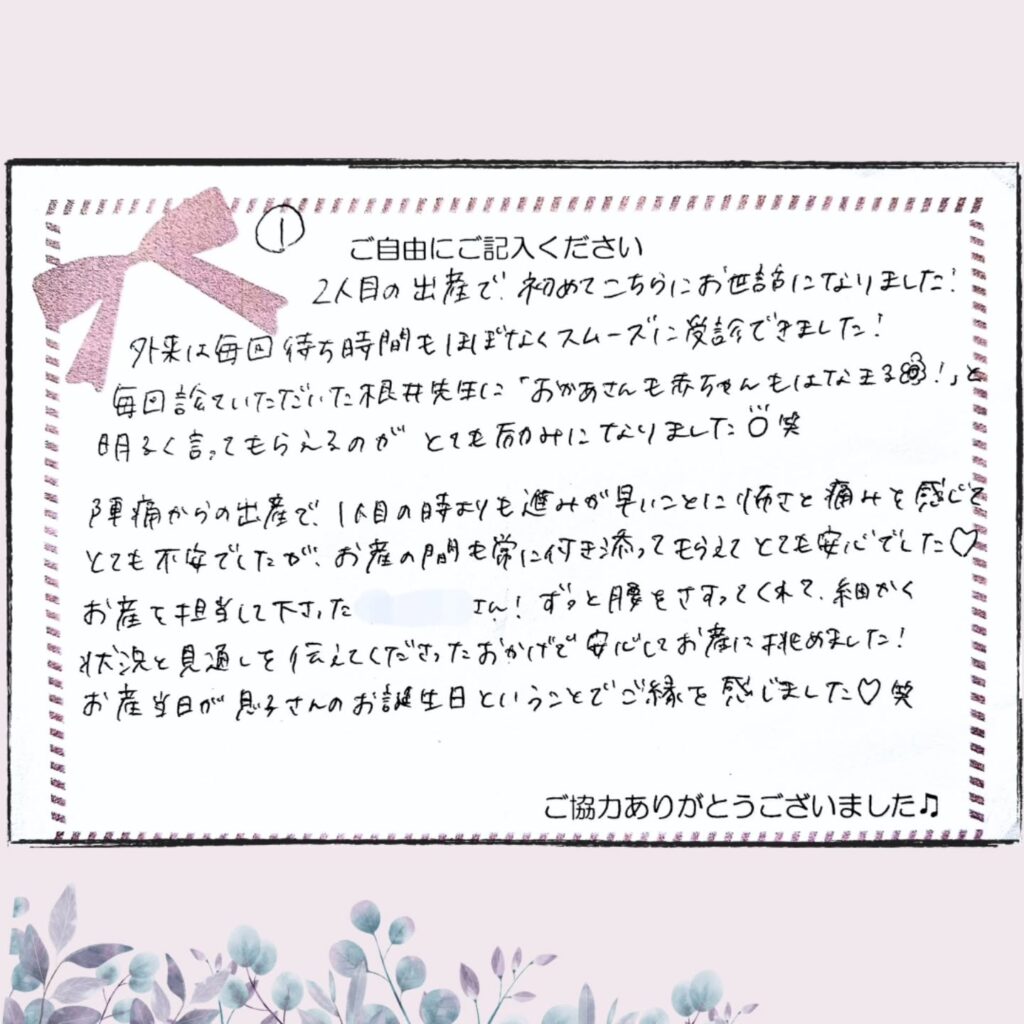 ①
ご自由にご記入ください
2人目の出産で、初めてこちらにお世話になりました!
外来は毎回待ち時間もほぼなくスムーズに受診できました!
毎回診ていただいた根井先生に「おかあさんも赤ちゃんもはなまる!」と
明るく言ってもらえるのがとても励みになりました笑
陣痛からの出産で、1人目の時よりも進みが早いことに怖さと痛みを感じて
とても不安でしたが、お産の間も常に付き添ってもらえてとても安心でした♡
お産を担当して下さった さん!ずっと腰をさすってくれて、細かく
状況と見通しを伝えてくださったおかげで安心してお産に挑めました!
お産当日が息子さんのお誕生日ということでご縁を感じました♡笑
ご協力ありがとうございました♫